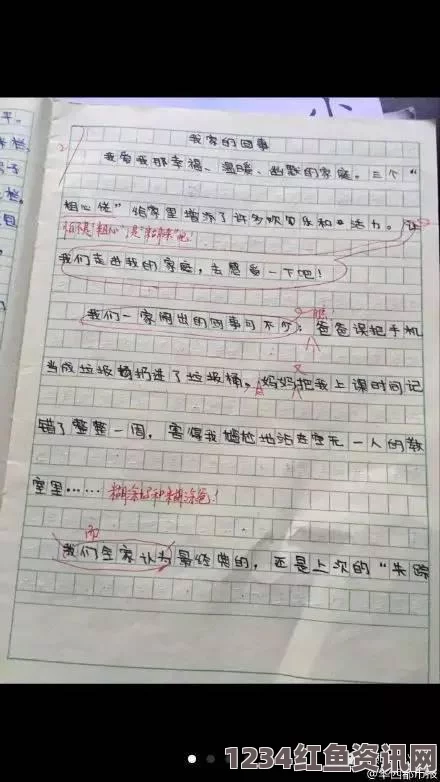 小
平。
栏,
目
我家的囧事
我爱我那幸福、温暖、幽默的家庭。三个“
粗心佬”给家里增添了许多欢笑乐和活力。让
恐怕不是“粗心”,是“粘糊”吧
我们走进我的家庭,去感受一下吧!
我们一家闹出的囧事可不少:爸爸误把手机
当成垃圾扔进了垃圾桶,妈妈把我上课时间记
错了整整一周,害得我尴尬地站在空无一人的教
室里……糊涂妈和糊涂爸!
而
我们全家认为最经典的,还是上次的“失踪
@华西都市报
1234红鱼资讯网